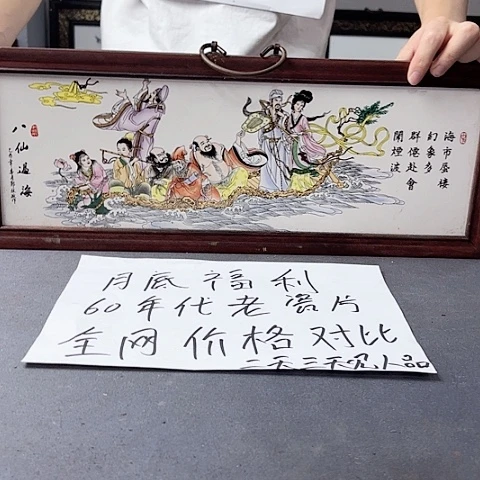 八仙過海
海市蜃樓
幻象多
群僊赴會
闹煙波
月底福利
60年代老瓷片
全网价格对比
二天三天见人品